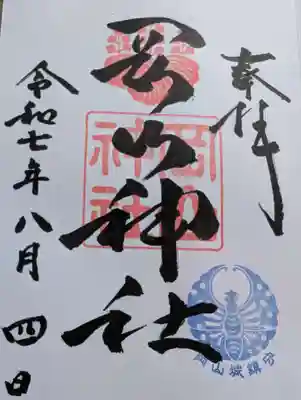 奉拝
岡山神社
岡山
神社
岡山城鎮守
令和七年八月四日